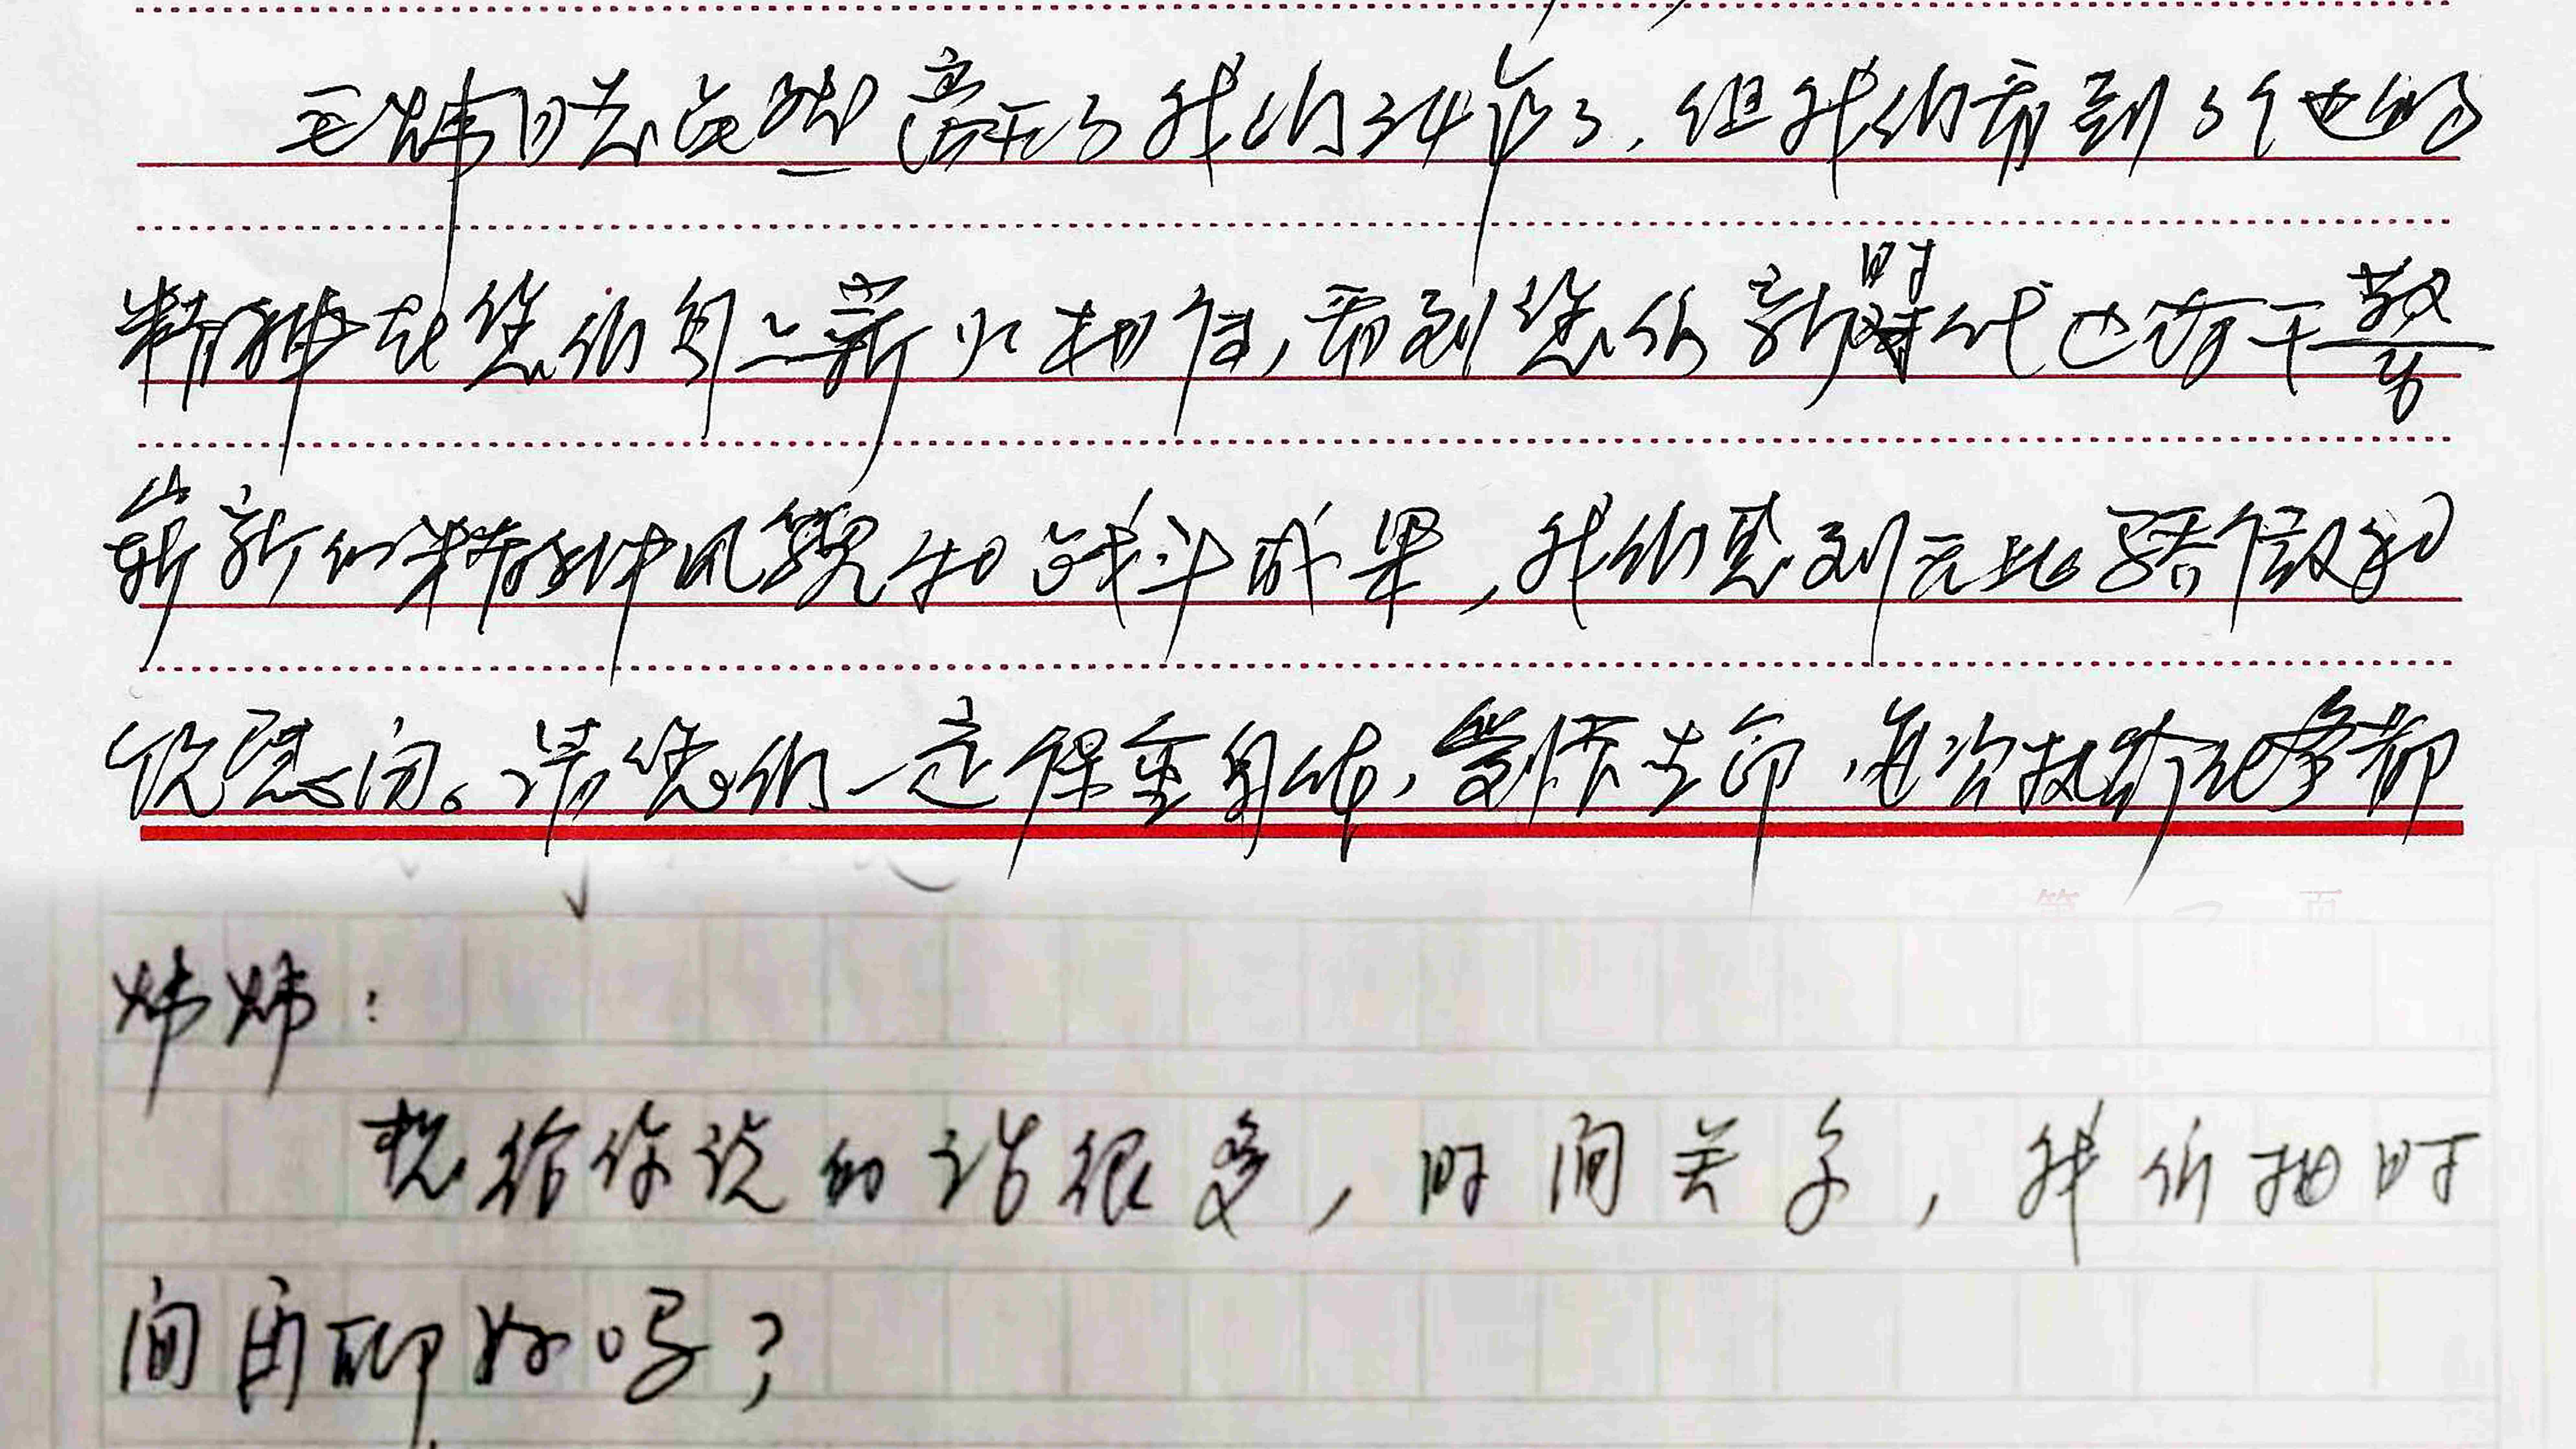 王炜同志虽然离开了我们34年了，但我们看到了他的
精神在您们身上薪火相传，看到您们新时代也有干警
崭新的精神风貌和战斗成果，我们感到无比骄傲和
欣慰。请您们一定保重身体，爱惜生命，每次执行任务都
姊姊：
想给你说的话很多，时间关系，我们抽时
间再聊好吗？